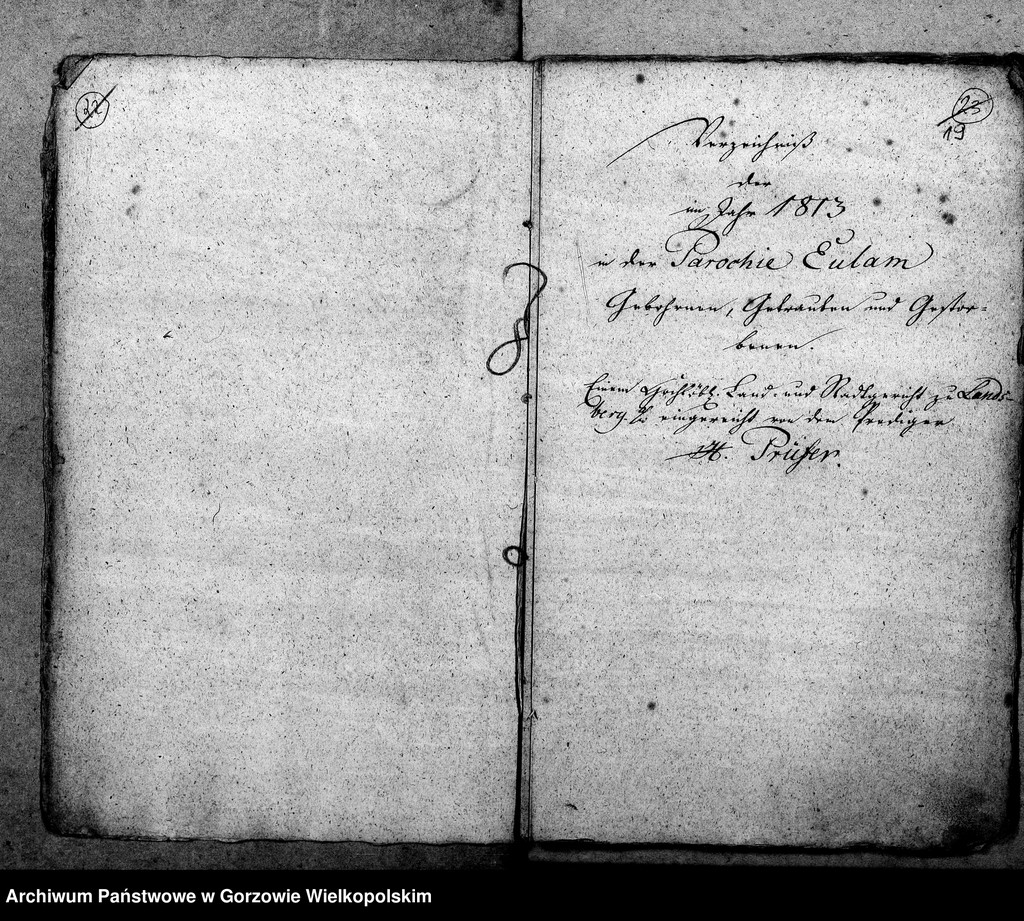 22
23
19
Verzeichniß
der
im Jahr 1813
in der Parochie Eulam
Gebohrnen, Getrauten und Gestor-
benen.
Einem Hochlöbl. Land- und Stadtgericht zu Lands-
berg eingereicht von dem Prediger
H. Prüfer.
Archiwum Państwowe w Gorzowie Wielkopolskim